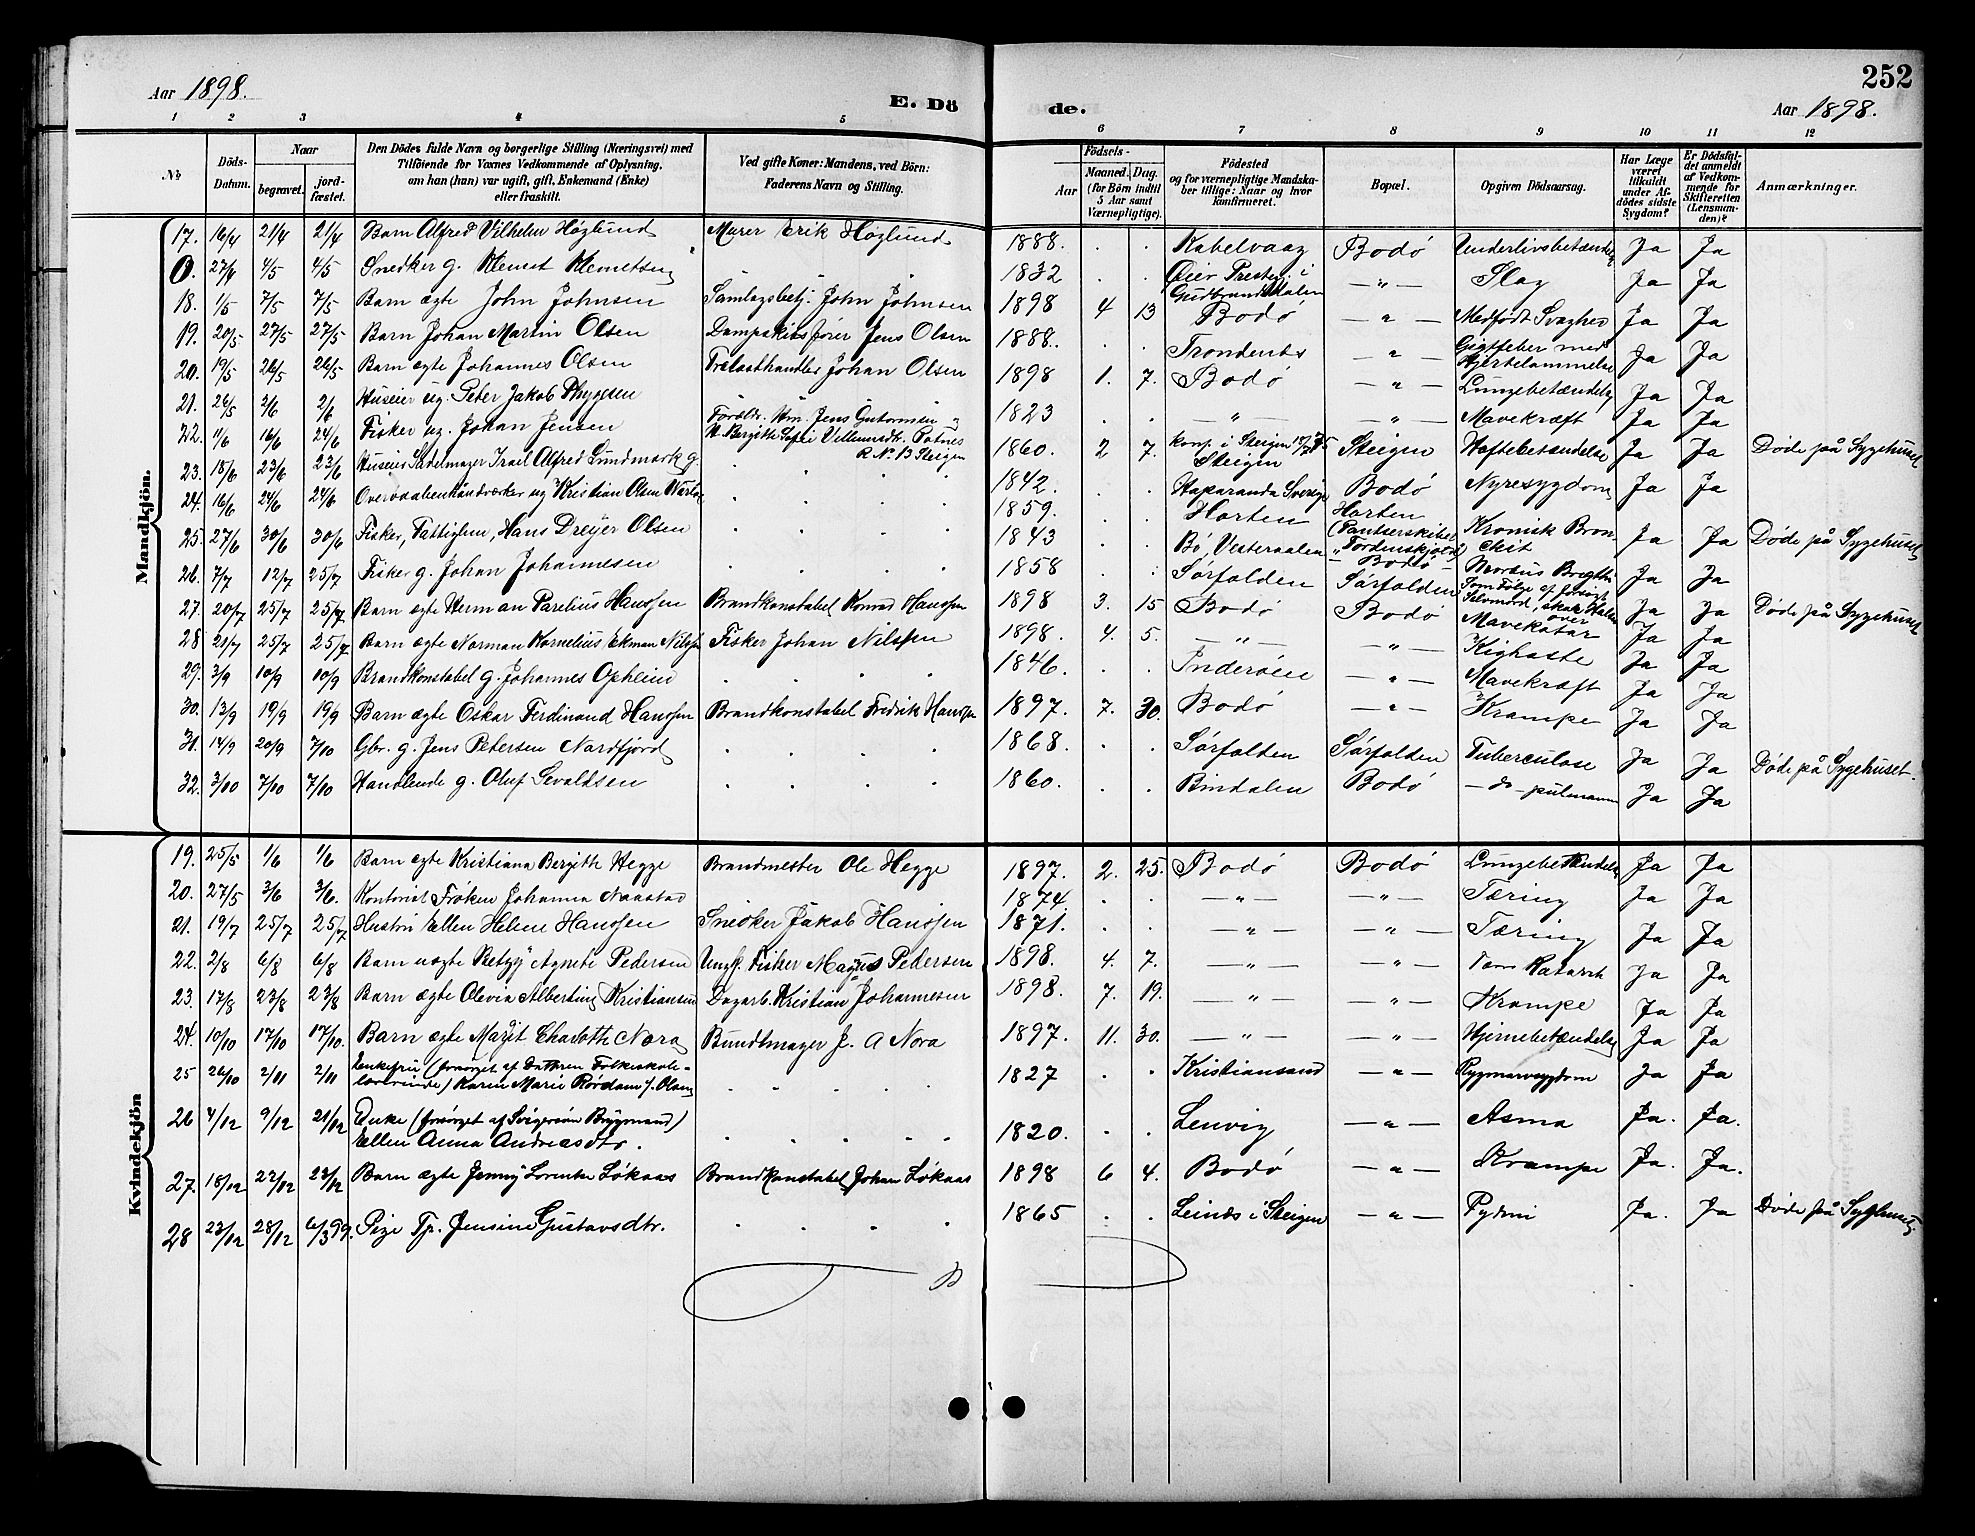 Aar 1898.
E. Dö
de.
252
Aar 1898.
1 2 3 4 5 6 7 8 9 10 11 12
No
Döds-Datum.
Naar
begravet.
jord-fæstet.
Den Dödes fulde Navn og borgerlige Stilling (Næringsvei) med
Tilföiende for Voxnes Vedkommende af Oplysning,
om han (hun) var ugift, gift, Enkemand (Enke)
eller fraskilt.
Ved gifte Koner: Mandens, ved Börn:
Faderens Navn og Stilling.
Födsels-
Aar
Maaned. Dag.
(for Börn indtil
5 Aar samt
Værnepligtige).
Födested
og for værnepligtige Mandska-
ber tillige: Naar og hvor
konfirmeret.
Bopæl.
Opgiven Dödsaarsag.
Har Læge
været
tilkaldt
under Af-
dödes sidste
Sygdom?
Er Dödsfal-
det anmeldt
af Vedkom-
mende for
Skifteretten
(Lensman-
den)?
Anmærkninger.
Mandkjön.
17. 16/4 21/4 21/4 Barn Alfred Vilhelm Høglund Murer Erik Høglund 1888. . . Kabelvaag Bodø Underlivsbetændelse Ja Ja
0. 27/4 4/5 4/5 Snedker g. Klemet Klemetsen 1832 . . Øier Prestegj. i Gudbrandsdalen — " — Slag Ja Ja
18. 1/5 7/5 7/5 Barn ægte John Johnsen Samlagsbetj. John Johnsen 1898 4 13 Bodø — " — Medfødt Svaghed Ja Ja
19. 20/5 27/5 27/5 Barn Johan Martin Olsen Dampskibsfører Jens Olsen 1888. . . Trondenes — " — Gigtfeber med Hjertelammelse Ja Ja
20. 19/5 26/5 26/5 Barn ægte Johannes Olsen Trælasthandler Johan Olsen 1898 1. 7. Bodø — " — Lungebetændelse Ja Ja
21. 26/5 2/6 2/6 Huseier ug. Peter Jakob Thygesen 1823 . . — " — — " — Mavekræft Ja Ja
22. 11/6 16/6 24/6 Fisker ug. Johan Jensen Forældr. Jens Gutormsen og H. Bergitte Sofie Villumsdtr. Potnes R. No 13 Steigen 1860. 2 7. konf. i Steigen Steigen Steigen Hoftebetændelse Ja Ja Døde på Sygehuset
23. 18/6 23/6 23/6 Huseier Sadelmager Israel Alfred Lundmark g. . . . 1842. . . Haparanda Sverige Bodø Nyresygdom Ja Ja
24. 16/6 24/6 24/6 Overvaabenhåndværker ug Kristian Olsen . . . 1859. . . Horten Horten (Pantserskibet "Tordenskjold") Kronisk Bronchit Ja Ja Døde på Sygehuset
25. 27/6 30/6 30/6 Fisker, Fattiglem, Hans Dreyer Olsen . . . 1843 . . Bø, Vesteraalen — Bodø — Ja Ja
26. 7/7 12/7 25/7 Fisker g. Johan Johannesen . . . 1858 . . Sørfolden Sørfolden som Følge af forsøgt Selvmord, skar Halsen over Ja Ja Døde på Sygehuset
27. 20/7 25/7 25/7 Barn ægte Herman Parelius Hanssen Brandkonstabel Konrad Hanssen 1898 3. 15 Bodø Bodø Mavekatar Ja Ja
28 21/7 25/7 25/7 Barn ægte Norman Kornelius Ekman Nilssen Fisker Johan Nilssen 1898. 4. 5. — " — — " — Kighoste Ja Ja
29. 3/9 10/9 10/9 Brandkonstabel g. Johannes Opheim . . . 1846. . . Inderøen — " — Mavekræft Ja Ja
30. 13/9 19/9 19/9 Barn ægte Oskar Ferdinand Hanssen Brandkonstabel Fredrik Hanssen 1897. 7. 30. Bodø — " — Krampe Ja Ja
31. 14/9 20/9 7/10 Gbr. g. Jens Petersen Nordfjord . . . 1868. . . Sørfolden Sørfolden Tuberculose Ja Ja Døde på Sygehuset.
32. 3/10 7/10 7/10 Handlende g. Oluf Sevaldsen . . . 1860. . . Bindalen Bodø — do — pulmonum Ja Ja
Kvindekjön
19. 25/5 1/6 1/6 Barn ægte Kristiana Bergitte Hegge Brandmester Ole Hegge 1897. 2. 25. Bodø Bodø Lungebetændelse Ja Ja
20. 27/5 3/6 3/6. Kontorist Frøken Johanna Naastad 1874. . . — " — — " — Tæring Ja Ja
21. 19/7 25/7 25/7 Hustru Ellen Helene Hanssen Snedker Jakob Hanssen 1871. . . — " — — " — Tæring Ja Ja
22. 2/8 6/8 6/8 Barn uægte Betzy Agnete Pedersen Ungk. Fisker Magnus Pedersen 1898. 4. 7. — " — — " — Tarm Katarrh Ja Ja
23. 17/8 23/8 23/8 Barn ægte Olevia Albertine Kristiansen Dagarb. Kristian Johannesen 1898. 7. 19. — " — — " — Krampe Ja Ja
24. 10/10 17/10 17/10. Barn ægte Margit Charlotte Nora Bundtmager J. A Nora 1897. 11. 30. — " — — " — Hjernebetændelse Ja Ja
25 26/10 2/11 2/11 Enkefru (forsørget af Datteren Folkeskole-
lærerinde) Karen Marie Rørdam f. Olsen . . . 1827 . . Kristiansand — " — Rygmarvsygdom Ja Ja
26 4/12 9/12 21/12 Enke (forsørget af Svigersøn Brygmand)
Ellen Anna Andreasdtr. . . . 1820. . . Lenvig — " — Asma Ja. Ja.
27. 18/12 22/12 22/12 Barn ægte Jenny Lorentse Løkaas Brandkonstabel Johan Løkaas 1898 6 4. Bodø — " — Krampe Ja. Ja.
28 23/12 28/12 6/3 99. Pige Tj. Jensine Gustavsdtr. . . . 1865 . . Leines i Steigen — " — Pydmi Ja. Ja Døde på Sygehuset.